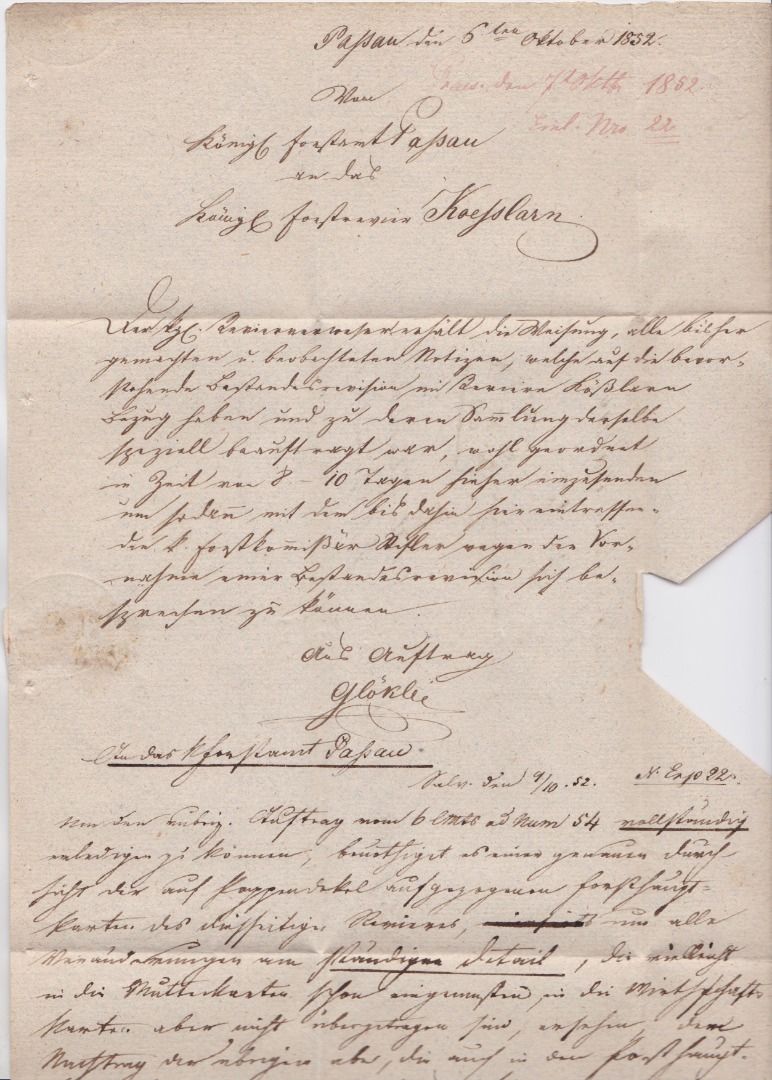 Paßau den 6ten Oktober 1852.
Praes. den 7t Oktb 1852.
Von
Einl. Nro 22
Königl Forstamt Paßau
an das
Königl Forstrevier Koesslarn.
Der kgl. Revierverweser erhält die Weisung, alle bisher
gemachten u. beobachteten Notizen, welche auf die bevor-
stehende Bestandesrevision im Reviere Kößlarn
Bezug haben und zu deren Sammlung derselbe
speziell beauftragt war, wohl geordnet
in Zeit von 8 – 10 Tagen hieher einzusenden
um sodann mit dem bis dahin hier eintreffen-
den k. Forstkommißär wegen der Vor-
nahme einer Bestandesrevision sich be-
sprechen zu können.
Aus Auftrag
Glökle
An das k Forstamt Paßau.
den 9/10. 52. No Exp 22.
Um den rubriz. Auftrag vom 6 l Mts ad Num 54 vollständig
erledigen zu können, benöthiget es einer genauen Durch-
sicht der auf Pappendekel aufgezogenen Forsthaupt-
karten des dießseitigen Revieres, um alle
Veränderungen am ständigen Detail, die vielleicht
in die Mutterkarten schon eingemessen, in die Wirthschafts
karten aber nicht übergetragen sind, ersehen, dem
Nachtrag der übrigen aber, die auch in den Forsthaupt-